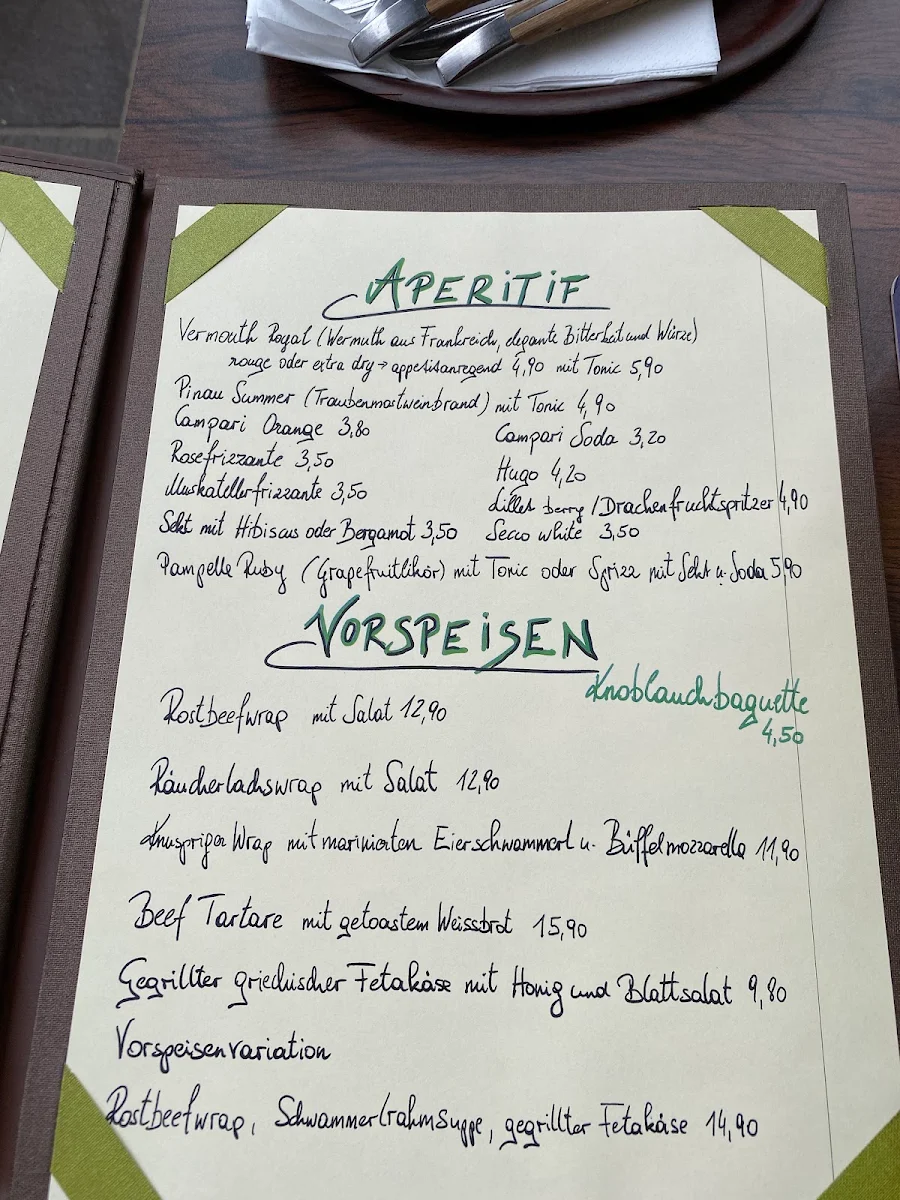 APERITIF
Vermouth Royal (Wermuth aus Frankreich, elegante Bitterkeit und Würze)
rouge oder extra dry → appetitanregend 4,90 mit Tonic 5,90
Pinau Summer (Traubenmostweinbrand) mit Tonic 4,90
Campari Orange 3,80 Campari Soda 3,20
Rosefrizzante 3,50 Hugo 4,20
Muskatellerfrizzante 3,50 Lillet berry / Drachenfruchtspritzer 4,90
Sekt mit Hibiscus oder Bergamot 3,50 Secco white 3,50
Pampelle Ruby (Grapefruitlikör) mit Tonic oder Sprizz mit Sekt u. Soda 5,90
VORSPEISEN
Knoblauchbaguette
4,50
Rostbeefwrap mit Salat 12,90
Räucherlachswrap mit Salat 12,90
Knuspriger Wrap mit marinierten Eierschwammerl u. Büffelmozzarella 11,90
Beef Tartare mit getoastem Weissbrot 15,90
Gegrillter griechischer Fetakäse mit Honig und Blattsalat 9,80
Vorspeisenvariation
Rostbeefwrap, Schwammerlrahmsuppe, gegrillter Fetakäse 14,90